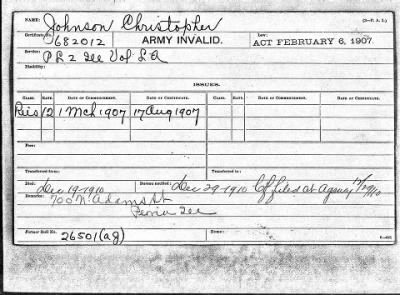 NAME: Johnson Christopher (3-P. A. I.)
Certificate No. 682012 ARMY INVALID. Law: ACT FEBRUARY 6, 1907.
Service: Pt L 2 Ill Vol L A
Disability:
ISSUES.
CLASS. RATE. DATE OF COMMENCEMENT. DATE OF CERTIFICATE. CLASS. RATE. DATE OF COMMENCEMENT. DATE OF CERTIFICATE.
12 1 Mch 1907 17 Aug 1907
Fee:
Transferred from:
Transferred to:
Died: Dec 19-1910 Bureau notified: Dec 29-1910 filed at Agency 12/29/10
Remarks: 700 N. Adams St
Peoria Ill
Former Roll No. 26501 (ag) Home: